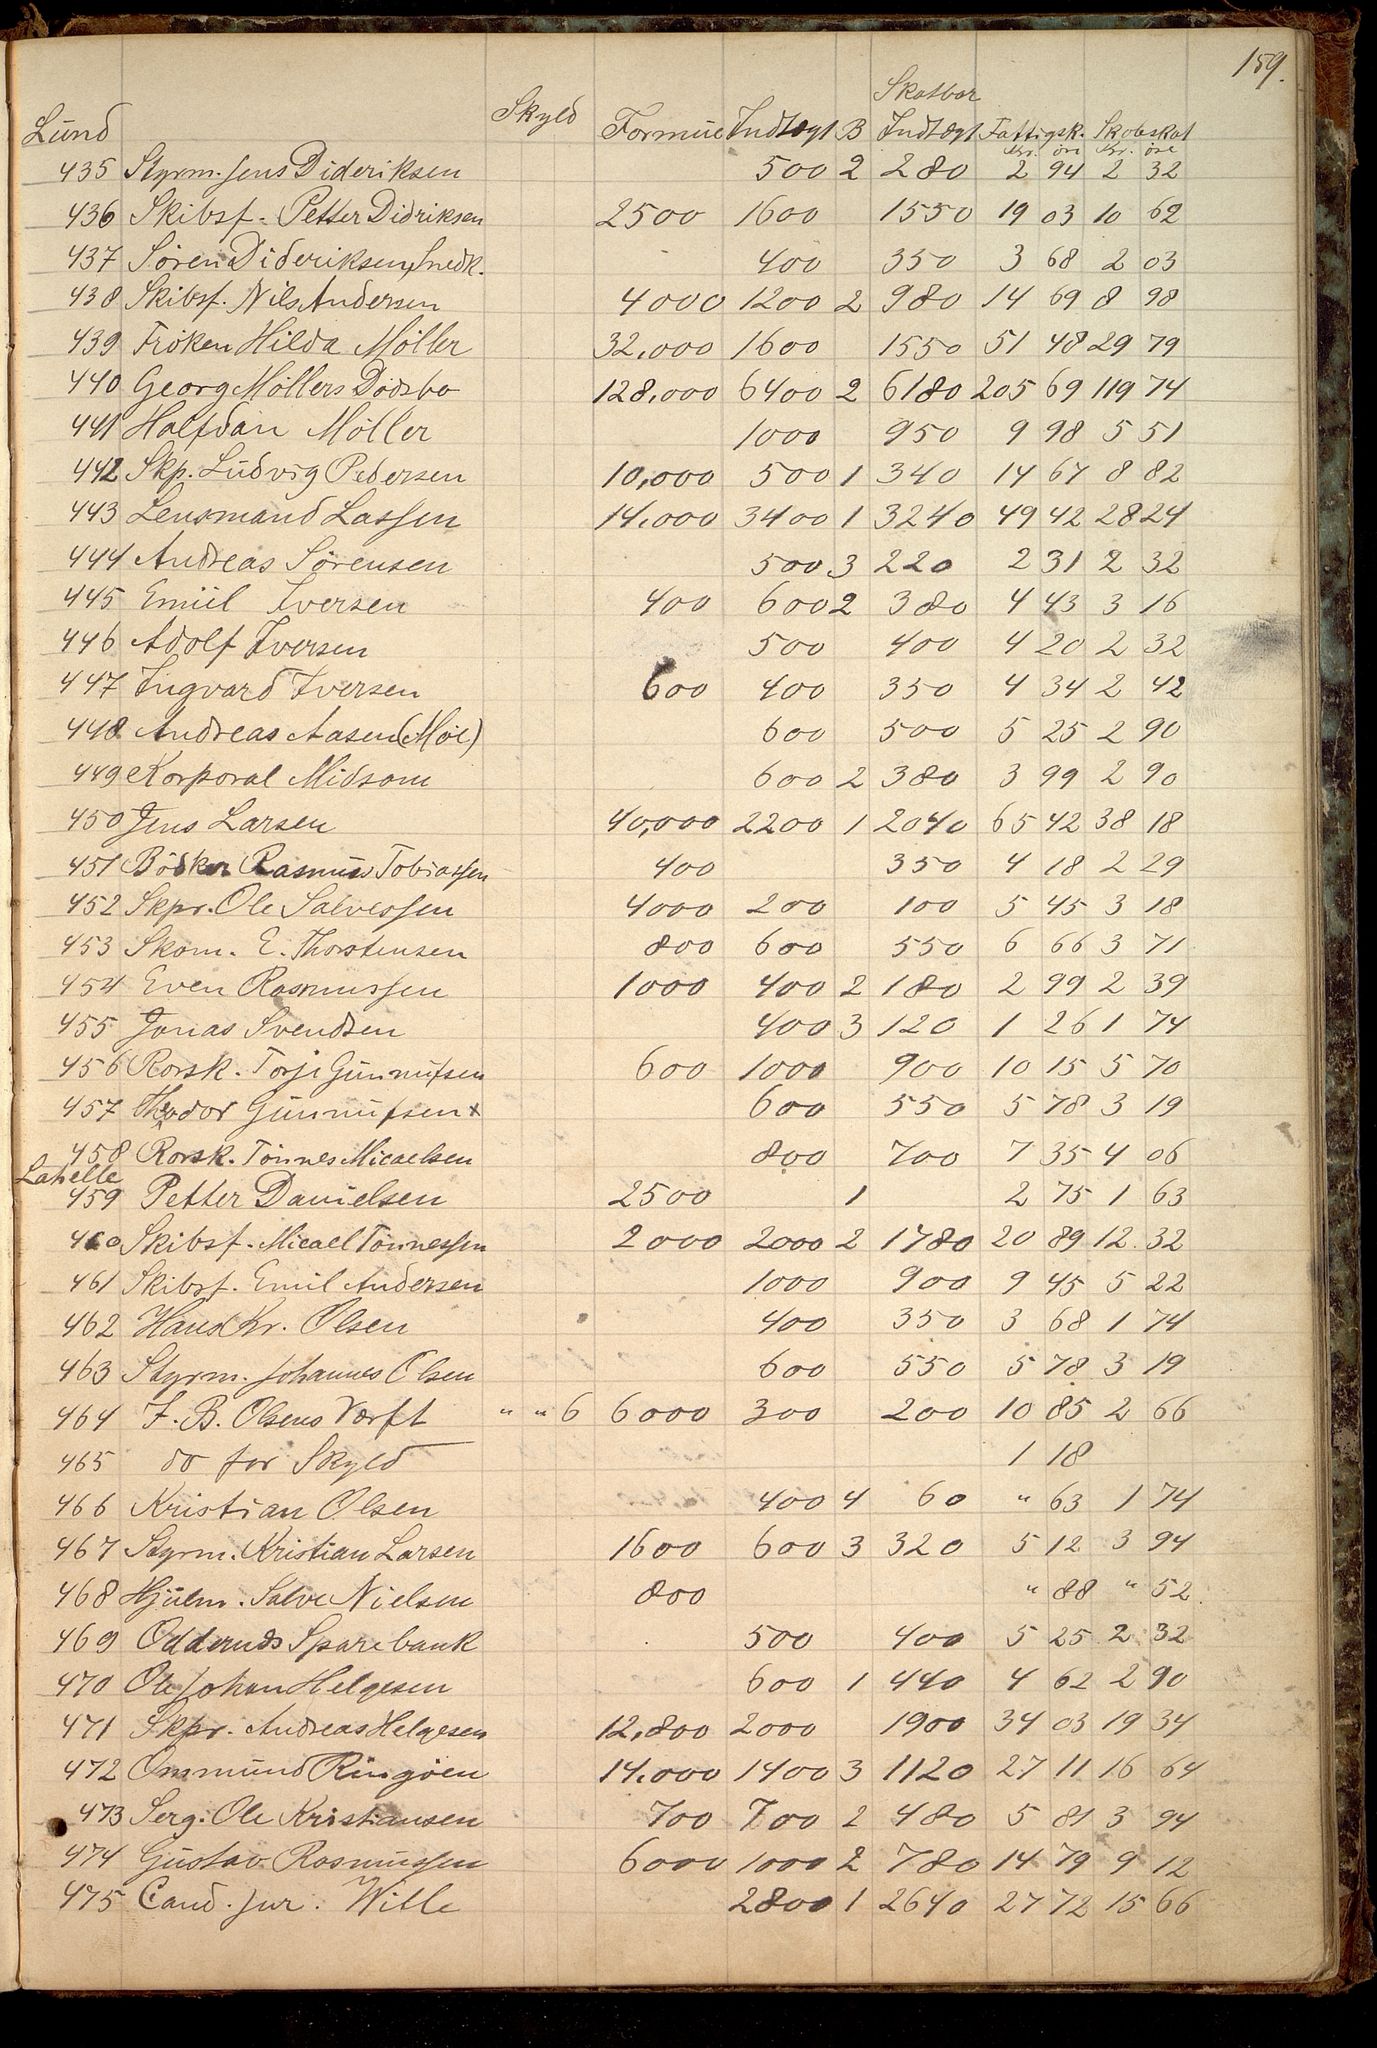 159.
Skatbar
Lund Skyld Formue Indtægt B Indtægt Fattigsk. Skolskat
Kr. öre Kr. öre
435 Styrm. Jens Dideriksen 500 2 280 2 94 2 32
436 Skibsf. Petter Didriksen 2500 1600 1550 19 03 10 62
437 Sören Dideriksen, Snedk. 400 350 3 68 2 03
438 Skibsf. Nils Andersen 4000 1200 2 980 14 69 8 98
439 Fröken Hilda Möller 32,000 1600 1550 51 48 29 79
440 Georg Möllers Dödsbo 128,000 6400 2 6180 205 69 119 74
441 Halfdan Möller 1000 950 9 98 5 51
442 Skp. Ludvig Pedersen 10,000 500 1 340 14 67 8 82
443 Lensmand Lassen 14,000 3400 1 3240 49 42 28 24
444 Andreas Sörensen 500 3 220 2 31 2 32
445 Emiil Iversen 400 600 2 380 4 43 3 16
446 Adolf Iversen 500 400 4 20 2 32
447 Ingvard Iversen 600 400 350 4 34 2 42
448 Andreas Aasen (Möe) 600 500 5 25 2 90
449 Korporal Midsom 600 2 380 3 99 2 90
450 Jens Larsen 40,000 2200 1 2040 65 42 38 18
451 Bödker Rasmus Tobiassen 400 350 4 18 2 29
452 Skpr. Ole Salvessen 4000 200 100 5 45 3 18
453 Skom. E. Thorstensen 800 600 550 6 66 3 71
454 Even Rasmussen 1000 400 2 180 2 99 2 39
455 Jonas Svendsen 400 3 120 1 26 1 74
456 Rorsk. Torje Gunnufsen 600 1000 900 10 15 5 70
457 Theodor Gunnufsen x 600 550 5 78 3 19
458 Rorsk. Tönnes Micaelsen 800 700 7 35 4 06
Lahelle
459 Petter Danielsen 2500 1 2 75 1 63
460 Skibsf. Micael Tönnessen 2000 2000 2 1780 20 89 12 32
461 Skibsf. Emil Andersen 1000 900 9 45 5 22
462 Hans Kr. Olsen 400 350 3 68 1 74
463 Styrm. Johannes Olsen 600 550 5 78 3 19
464 F. B. Olsens Værft " " 6 6000 300 200 10 85 2 66
465 do for Skyld 1 18
466 Kristian Olsen 400 4 60 " 63 1 74
467 Styrm. Kristian Larsen 1600 600 3 320 5 12 3 94
468 Hjulm. Salve Nielsen 800 " 88 " 52
469 Oddernes Sparebank 500 400 5 25 2 32
470 Ole Johan Helgesen 600 1 440 4 62 2 90
471 Skpr. Andreas Helgesen 12,800 2000 1900 34 03 19 34
472 Ommund Ringöen 14,000 1400 3 1120 27 11 16 64
473 Serg. Ole Kristiansen 700 700 2 480 5 81 3 94
474 Gustav Rasmussen 6000 1000 2 780 14 79 9 12
475 Cand. jur. Wille 2800 1 2640 27 72 15 66